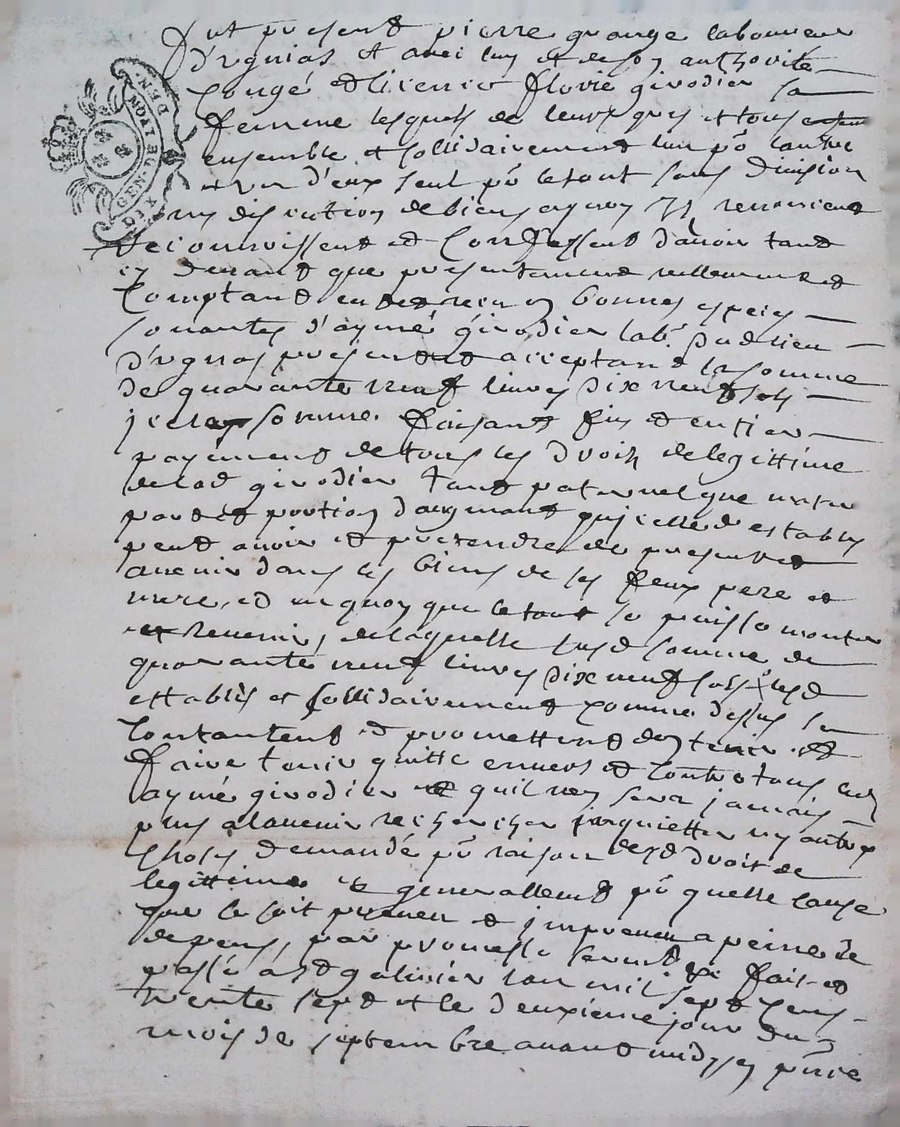 DIX DEN. GEN. LION. DEUX
fut present pierre grange laboureur
d'ugnias et avec luy et de son authorité
congé et licence flovie girodier sa
femme lesquels de leurs gres et tous
ensemble et sollidairement l'un pr lautre
et un d'eux seul pr le tout sans division
ny discution de biens a quoy ils renoncent
reconnoissent et confessent d'avoir tant
cy devant que presentement reellement et
comptant en bonnes espeices
sonantes d'aymé girodier labr dud lieu
d'ugnas present et acceptant la somme
de quarante neuf livres dix neuf sols
jcelle somme faisant fin et entier
payement de tous les droits de legittime
de lad girodier tant paternel que mater
part et portion d'augmant qu'jcelle d establis
peut avoir et pretendre de present et
avenir dans les biens de ses feux pere et
mere, et en quoy que le tout se puisse monter
et revenir, de laquelle susd somme de
quarante neuf livres dix neuf sols lesd
establis et sollidairement comme dessus se
contantent et promettent den tenir et
faire tenir quitte envers et contre tous led
aymé girodier et quil n'en sera jamais
plus a lavenir rechercher jnquietter ny autre
chose demandé pr raison desd droit de
legittime et generallemt pr quelle cause
que ce soit preveu et jmpreveu a peine de
depens, par promesse serment fait et
passé a st galmier lan mil sept cens
trente sept et le deuxieme jour du
mois de septembre avant midy en prnce